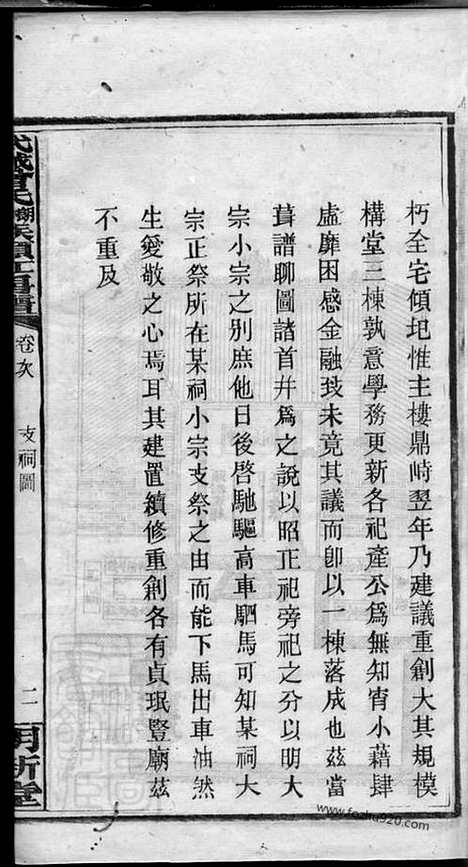 朽全宅傾圮惟主樓鼎峙翌年乃建議重創大其規模
構堂三棟孰意學務更新各祀產公爲無知宵小藉肆
虛靡困感金融攱未竟其議而卽以一棟落成也茲當
葺譜聊圖諸首幷爲之說以昭正祀旁祀之分以明大
宗小宗之別庶他日後啓馳驅高車駟馬可知某祠大
宗正祭所在某祠小宗支祭之由而能下馬出車油然
生愛敬之心焉耳其建置續修重創各有貞珉豎廟茲
不重及
卷次
支祠圖
二
明新堂
www.fozhu920.com